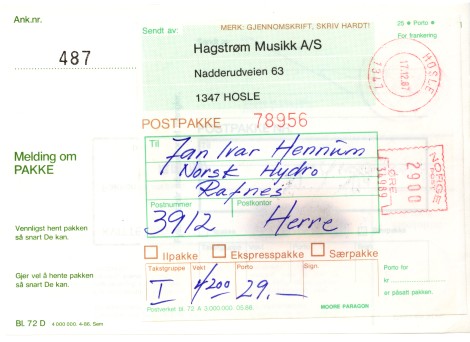 Ank.nr.
487
Melding om
PAKKE
Vennligst hent pakken
så snart De kan.
Gjer vel å hente pakken
så snart De kan.
Bl. 72 D 4 000 000. 4-86. Sem
MERK: GJENNOMSKRIFT, SKRIV HARDT!
Sendt av:
Hagstrøm Musikk A/S
Nadderudveien 63
1347 HOSLE
25 Porto
For frankering
HOSLE
17.12.87
1347
POSTPAKKE 78956
Til
Jan Ivar Hennum
Norsk Hydro
Rafnes
Postnummer Postkontor
3912 Herre
NORGE
2900
ØRE
Ilpakke Ekspresspakke Særpakke
Takstgruppe Vekt Porto Sign.
I 4200 29.—
Porto for
kr
er påsatt pakken.
Postverket bl. 72 A 3.000.000
MOORE PARAGON